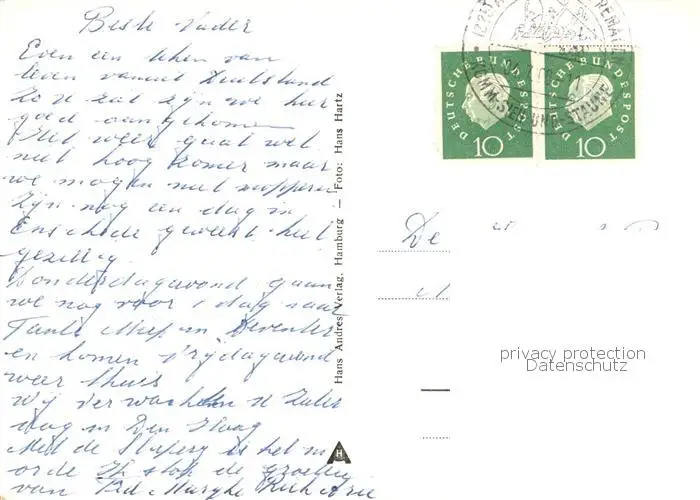 Beste Vader
Even een teken van
leven vanuit Duitsland
Zo je ziet zijn we hier
goed aangekomen
Het weer gaat wel
niet hoog zomer maar
we mogen niet mopperen
Zijn nog een dag in
Enschede geweest heel
gezellig.
Donderdagavond gaan
we nog voor 1 dag naar
Tante Miep in Deventer
en komen Vrijdagavond
weer thuis
Wij verwachten U Zater
dag in Den Haag
Met de is het in
orde de groeten
van Marijke Rich Arie
Hans Andres Verlag, Hamburg — Foto: Hans Hartz
DEUTSCHE BUNDESPOST
10
DEUTSCHE BUNDESPOST
10
KOMM, SIEH UND STAUNE
De
privacy protection
Datenschutz
H